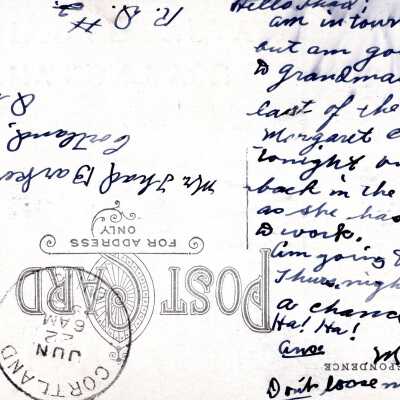 Hello Thad!
am in town
but am go
to Grandma
east of the
Margaret
tonight
back in the
as she has
to work.
am going
Thurs. night
a chanc
Ha! Ha!
M
Don't loose
Mr. Thad Barke
Cortland,
R. D. #2.
POST CARD
FOR ADDRESS
ONLY
SPONDENCE
CORTLAND
JUN
22
6 AM